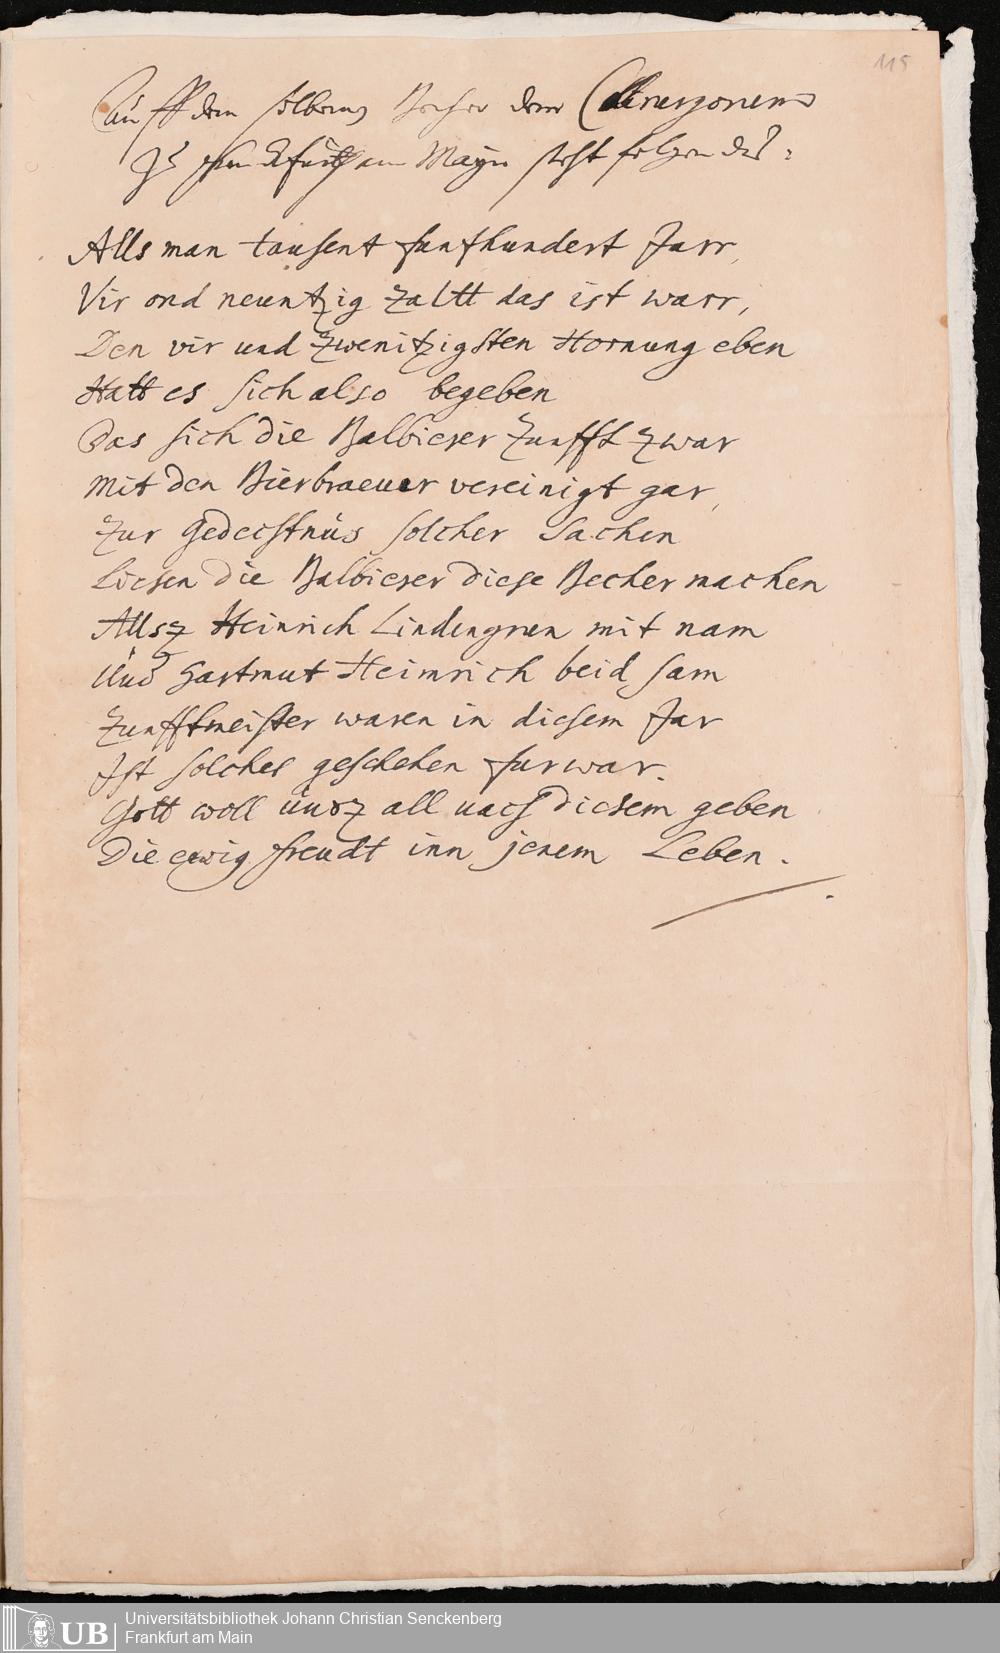 115
Auff dem silbernen Becher derer Chirurgorum
zu Franckfurth am Mayn steht folgendes:
Alls man tausent funfhundert Jarr,
Vir ond neuntzig zaltt das ist warr,
Den vir und zwenitzigsten Hornung eben
Hatt es sich also begeben
Das sich die Balbierer Zunfft zwar
Mit den Bierbraeuer vereinigt gar,
Zur Gedechtnus solcher Sachen
Liesen die Balbierer diese Becher machen
Allsz Heinrich Lindengrien mit nam
Und Hartmut Heinrich beid sam
Zunfftmeister waren in diesem Jar
Ist solches geschehen furwar.
Gott woll unsz all nach diesem geben
Die ewig freudt inn jenem Leben.
UB
Universitätsbibliothek Johann Christian Senckenberg
Frankfurt am Main